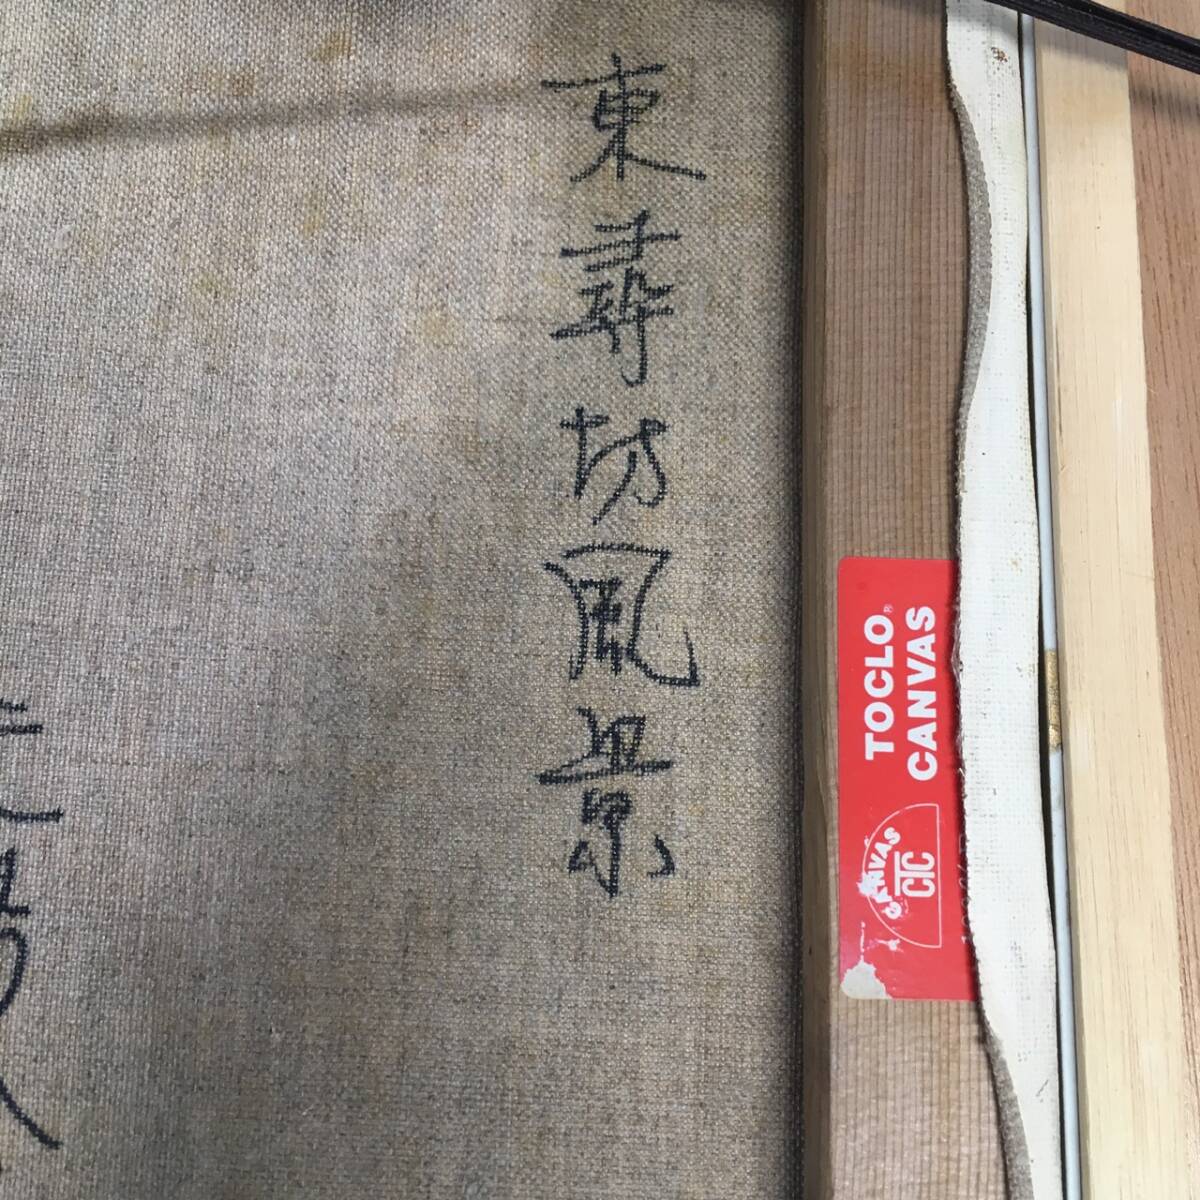 東尋坊風景
TOCLO®
CANVAS
CANVAS
CTC